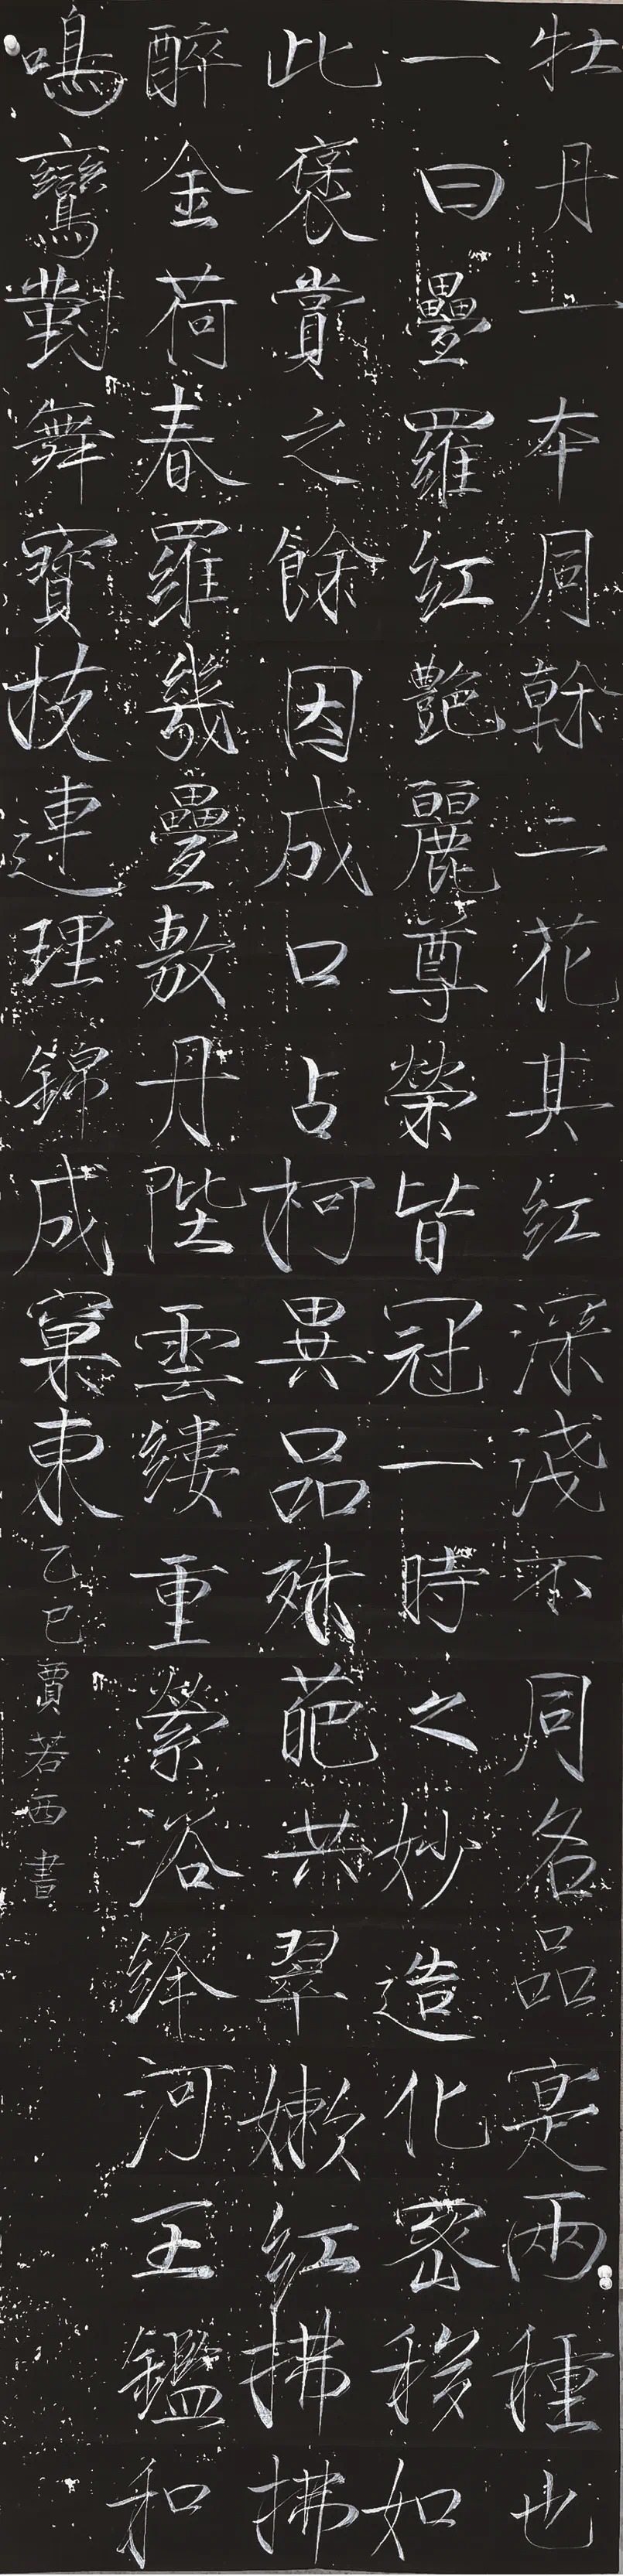 牡丹一本同榦二花其紅深淺不同名品寔兩種也
一曰疊羅紅艷麗尊榮皆冠一時之妙造化密移如
此褒賞之餘因成口占柯異品殊葩共翠嫩紅拂拂
醉金荷春羅幾疊敷丹陛雲縷重縈浴絳河玉鑑和
鳴鸞對舞寶枝連理錦成窠東乙巳賈若西書